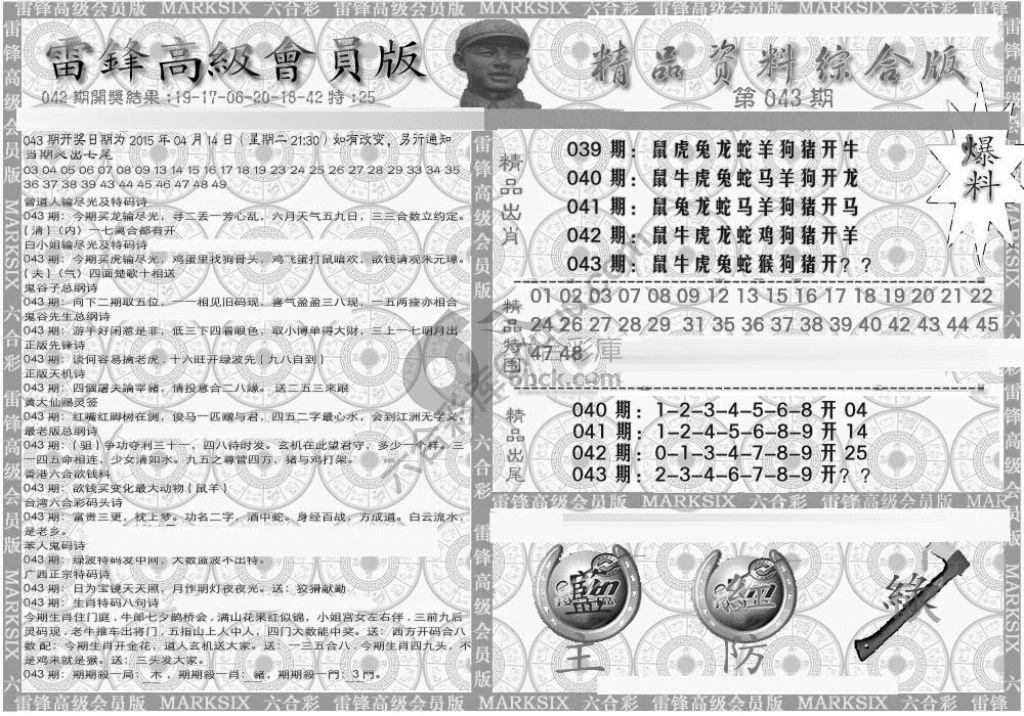 雷锋高级会员版 MARKSIX 六合彩 雷锋高级会员版 MARKSIX 六合彩 雷锋高级会员版 MARKSIX 六合彩 雷锋
雷鋒高級會員版
精品资料综合版
042 期開獎結果 :19-17-06-20-18-42 特 :25
第 043 期
043 期开奖日期为 2015 年 04 月 14 日 ( 星期二 21:30 ) 如有改变，另行通知
03 04 05 06 07 08 09 13 14 15 16 17 18 19 23 24 25 26 27 28 29 33 34 35
36 37 38 39 43 44 45 46 47 48 49
曾道人输尽光及特码诗
043 期：今期买龙输尽光，寻二丢一芳心乱，六月天气五九日，三三合数立约定。
(清)(内) 一七离合都有开
白小姐输尽光及特码诗
043 期：今期买虎输尽光，鸡蛋里找狗骨头，鸡飞蛋打鼠暗欢，欲钱请观朱元璋。
(夫)(气) 四面楚歌十相送
鬼谷子总纲诗
043 期：向下二期取五位，一一相见旧码现，喜气盈盈三八现，一五两痊亦相合
鬼谷先生总纲诗
043 期：游手好闲惹是非，低三下四看眼色，取小博单得大财，三上一七明月出
正版先锋诗
043 期：谈何容易擒老虎．十六旺开绿波先 ( 九八自到 )
正版天机诗
043 期：四個屠夫論宰豬，情投意合二八緣。送二五三來跟
黄大仙赐灵签
043 期：红嘴红脚树在侧，俊马一匹赠与君，四五二字最心水，会到江洲无学义。
最老版总纲诗
043 期：(驵) 争功夺利三十一，四八待时发。玄机在此望君守，多少一个样。三
一四五命相连，少女清如水。九五之尊管四方，猪与鸡打架。
香港六合欲钱料
043 期：欲钱买变化最大动物 ( 鼠羊 )
台湾六合彩码头诗
043 期：富贵三更，枕上梦。功名二字，酒中蛇。身经百战，方成道。白云流水，
是老乡。
本人鬼码诗
043 期：绿波特码发中间，大数蓝波不出特。
广西正宗特码诗
043 期：日为宝镜天天照，月作明灯夜夜光。送：狡猾献勤
043 期：生肖特码八句诗
今期生肖住门庭．牛郎七夕鹊桥会．满山花果红似锦，小姐宫女左右伴．三前九后
灵码现．老牛推车出将门．五指山上人中人，四门大数能中奖。送：西方开码合八
数 配：今期生肖开金花，道人玄机送大家。送：一三五合八．今期生肖四九头，不
是鸡来就是猴。送：三头发大家。
043 期：期期殺一局：木 ，期期殺一肖：豬，期期殺一門：3 門。
精品出肖
039 期：鼠虎兔龙蛇羊狗猪开牛
040 期：鼠牛虎兔蛇马羊狗开龙
041 期：鼠兔龙蛇马羊狗猪开马
042 期：鼠牛虎龙蛇鸡狗猪开羊
043 期：鼠牛虎兔蛇猴狗猪开? ?
爆料
精品特围
01 02 03 07 08 09 12 13 15 16 17 18 19 20 21 22
24 26 27 28 29 31 35 36 37 38 39 40 42 43 44 45
47 48
精品出尾
040 期：1-2-3-4-5-6-8 开 04
041 期：1-2-4-5-6-8-9 开 14
042 期：0-1-3-4-7-8-9 开 25
043 期：2-3-4-6-7-8-9 开? ?
雷锋高级会员版 MARKSIX 六合彩 雷锋高级会员版 MARK
藍
主
防
雷锋高级会员版 MARKSIX 六合彩 雷锋高级会员版 MARKSIX 六合彩 雷锋高级会员版 MARKSIX 六合彩 雷锋